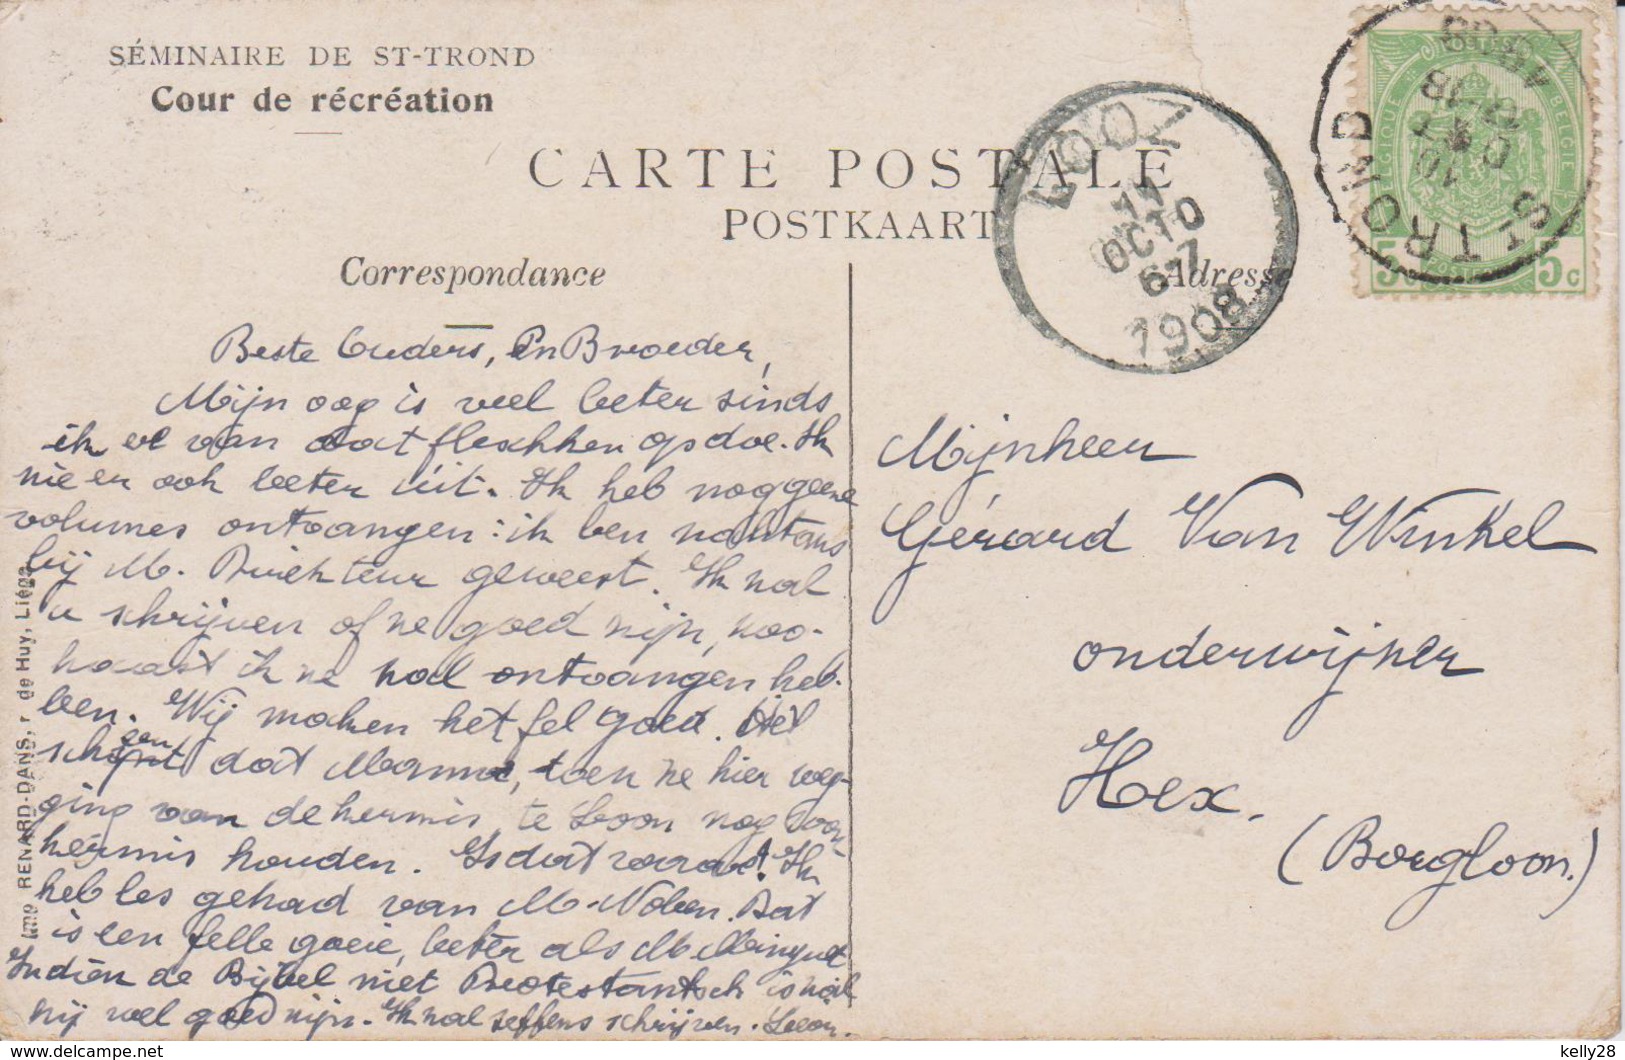 SÉMINAIRE DE ST-TROND
Cour de récréation
CARTE POSTALE
POSTKAART
Correspondance
Adresse
LOOZ
11
OCTO
6-7
1908
ST TROND
10
OCT
18
1908
BELGIQUE
BELGIË
POSTES
5c
5c
Beste Ouders, en Broeder,
Mijn oog is veel beter sinds
ik er van dat fleschken op doe. Ik
zie er ook beter uit. Ik heb nog geene
volumes ontvangen: ik ben nochtans
bij M. Direkteur geweest. Ik zal
u schrijven of ze goed zijn, zoo-
haast ik ze zal ontvangen heb-
ben. Wij maken het fel goed. Het
schijnt dat Mama, toen ze hier weg-
ging van de kermis, te Loon nog voor
kermis houden. Is dat waar? Ik
heb les gehad van M. Noben. Dat
is een felle goeie, beter als M. Minguet
Indien de Bijbel niet Protestantsch is zal
hij wel goed zijn. Ik zal seffens schrijven. Leon.
Mijnheer
Gérard Van Winkel
onderwijzer
Hex.
(Borgloon.)
Imp RENARD-DANS, r de Huy, Liége
kelly28